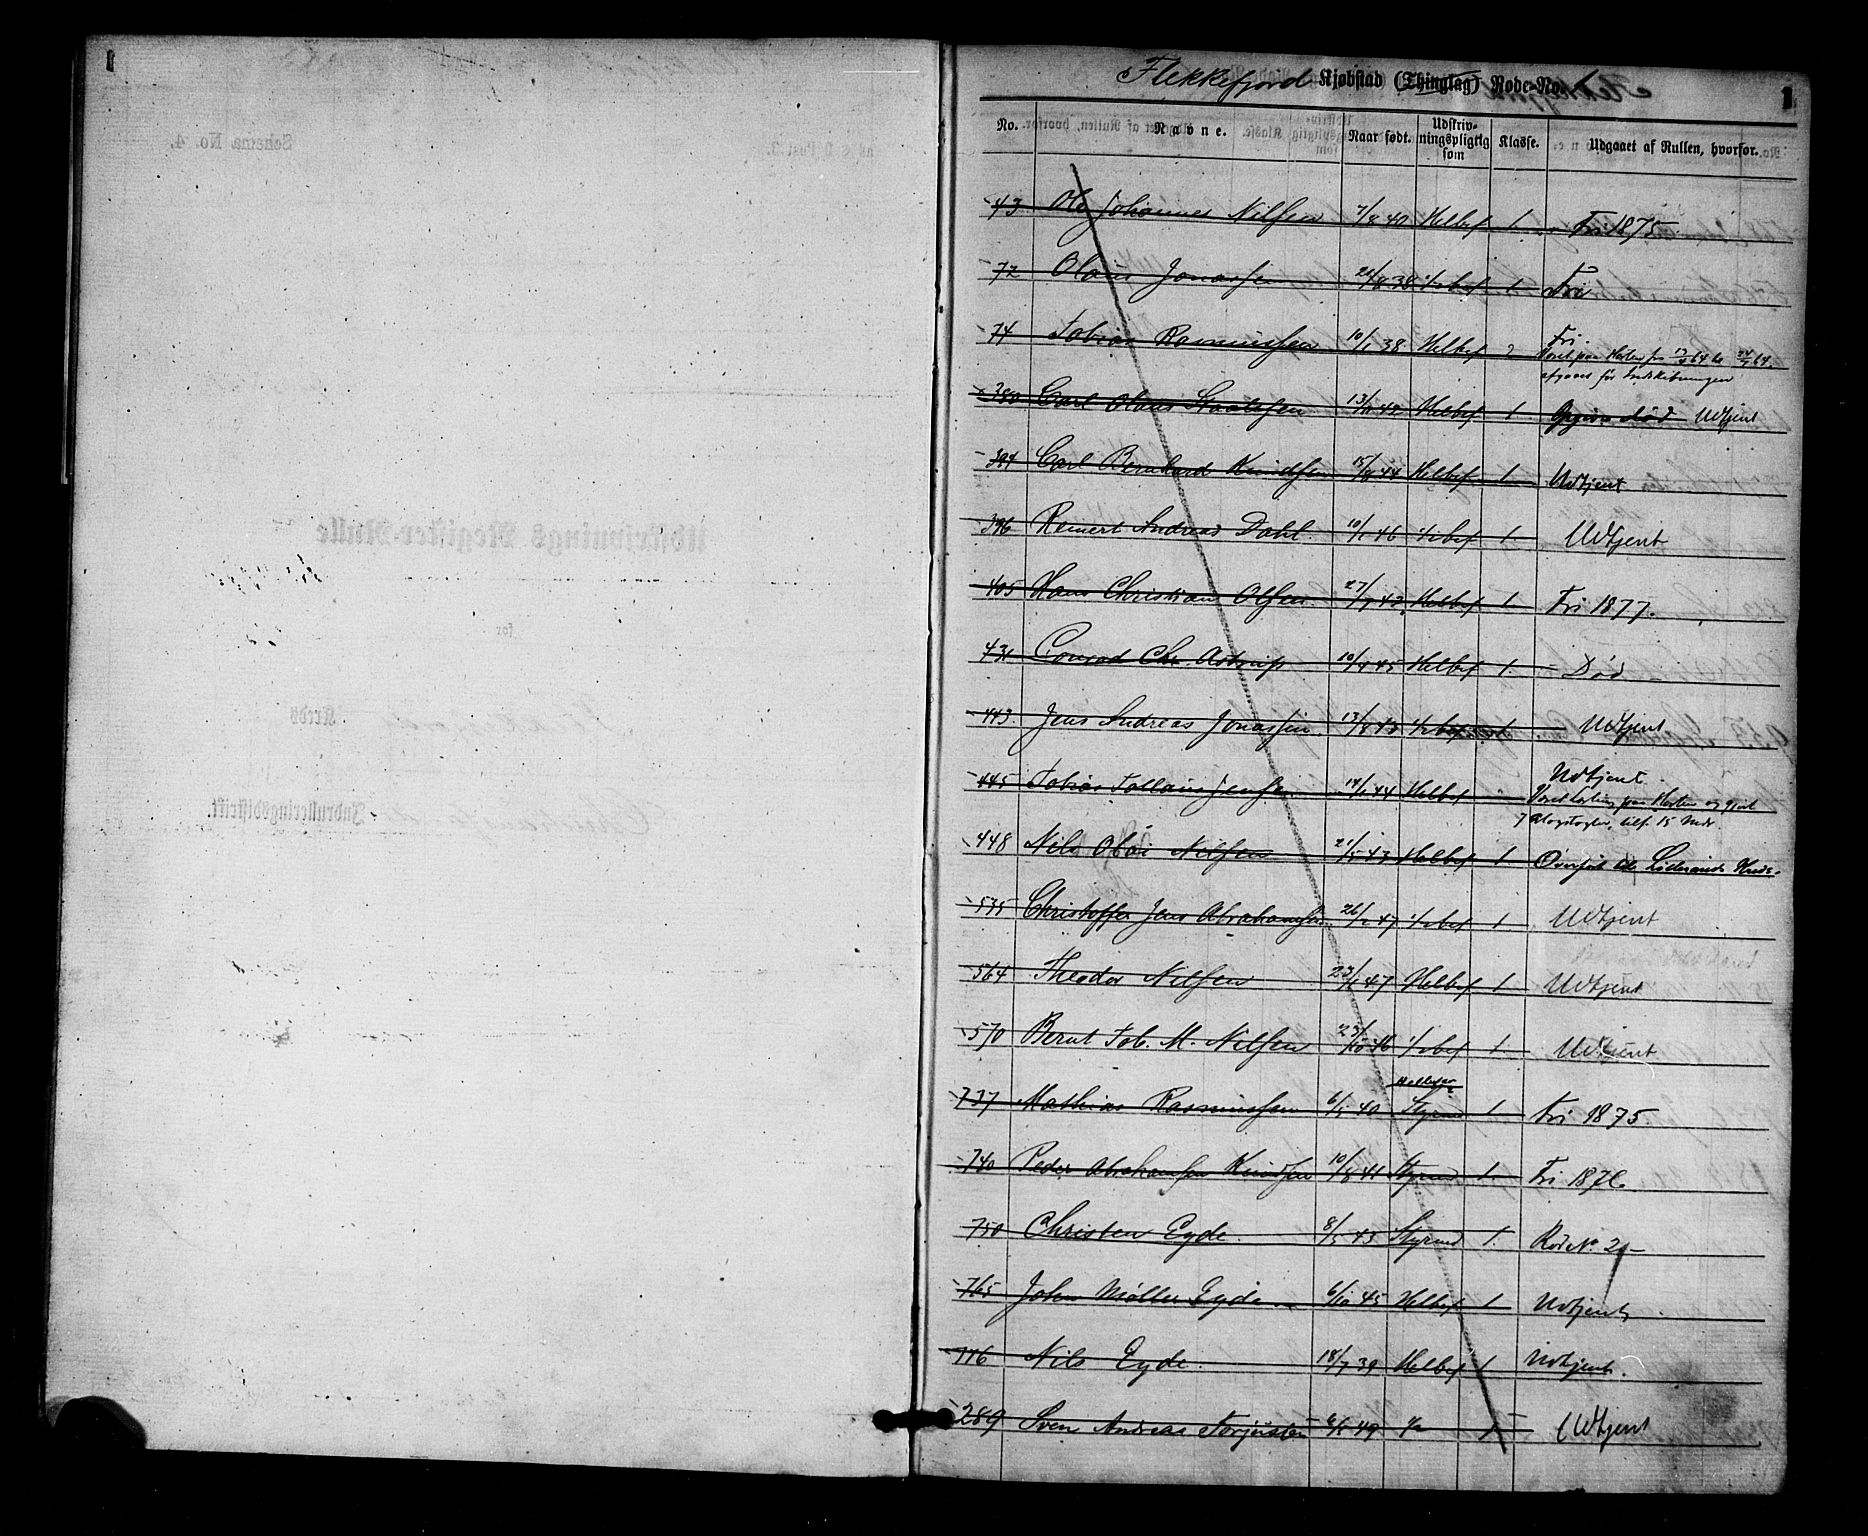 Flekkefjord Kjøbstad (Thinglag) Rode-No. 1
1
No. Navne. Naar født. Udskriv-ningspligtig som Klasse. Udgaaet af Rullen, hvorfor.
43 Ole Johannes Nilsen 7/8 40 Helbef 1. Fri 1875.
72 Olaus Jonassen 38 1/2bef 1 Fri
74 Tobias Rasmussen 10/1 38 Helbef 2 Fri.
afgaaet før
380 Carl Olaus 13/11 42 Helbef 1. Udtjent
394 Carl Bernhard Knudsen 15/8 44 Helbef 1. Udtjent
396 Reinert Andreas Dahl 10/1 46 1/2bef 1. Udtjent
405 Hans Christian Olsen 27/7 42 Helbef 1 Fri 1877.
431 Conrad Chr. Astrup 10/4 45 Helbef 1. Død
443. Jens Andreas Jonassen 13/8 43 1/2bef 1 Udtjent
445 Tobias Tollaus Jensen 14/1 44 Helbef Udtjent
448 Nils Olai Nilsen 21/5 43 Helbef 1 Overført til
535 Christoffer Jens Abrahamsen 26/2 47 1/2bef 1 Udtjent
564 Theodor Nilsen 23/1 47 Helbef 1 Udtjent
570 Bernt Tob. M. Nilsen 23/10 46 1/2bef 1. Udtjent
737 Mathias Rasmussen 6/5 40 Styrmd 1. Fri 1875.
740 Peder Abrahamsen Knudsen 10/8 41 Styrmd 1. Fri 1876.
750 Christen Eyde. 8/5 43 Styrmd 1. Rode No. 2
765 John Møller Eyde 6/10 45 Helbef 1 Udtjent
776 Nils Eyde. 18/7 39 Helbef 1 Udtjent.
289 Sven Andreas Torjusten 49 1/2 1 Udtjent
Schema No. 4.
Udskrivnings Register-Rulle
for
Kreds
Indrulleringsdistrikt.